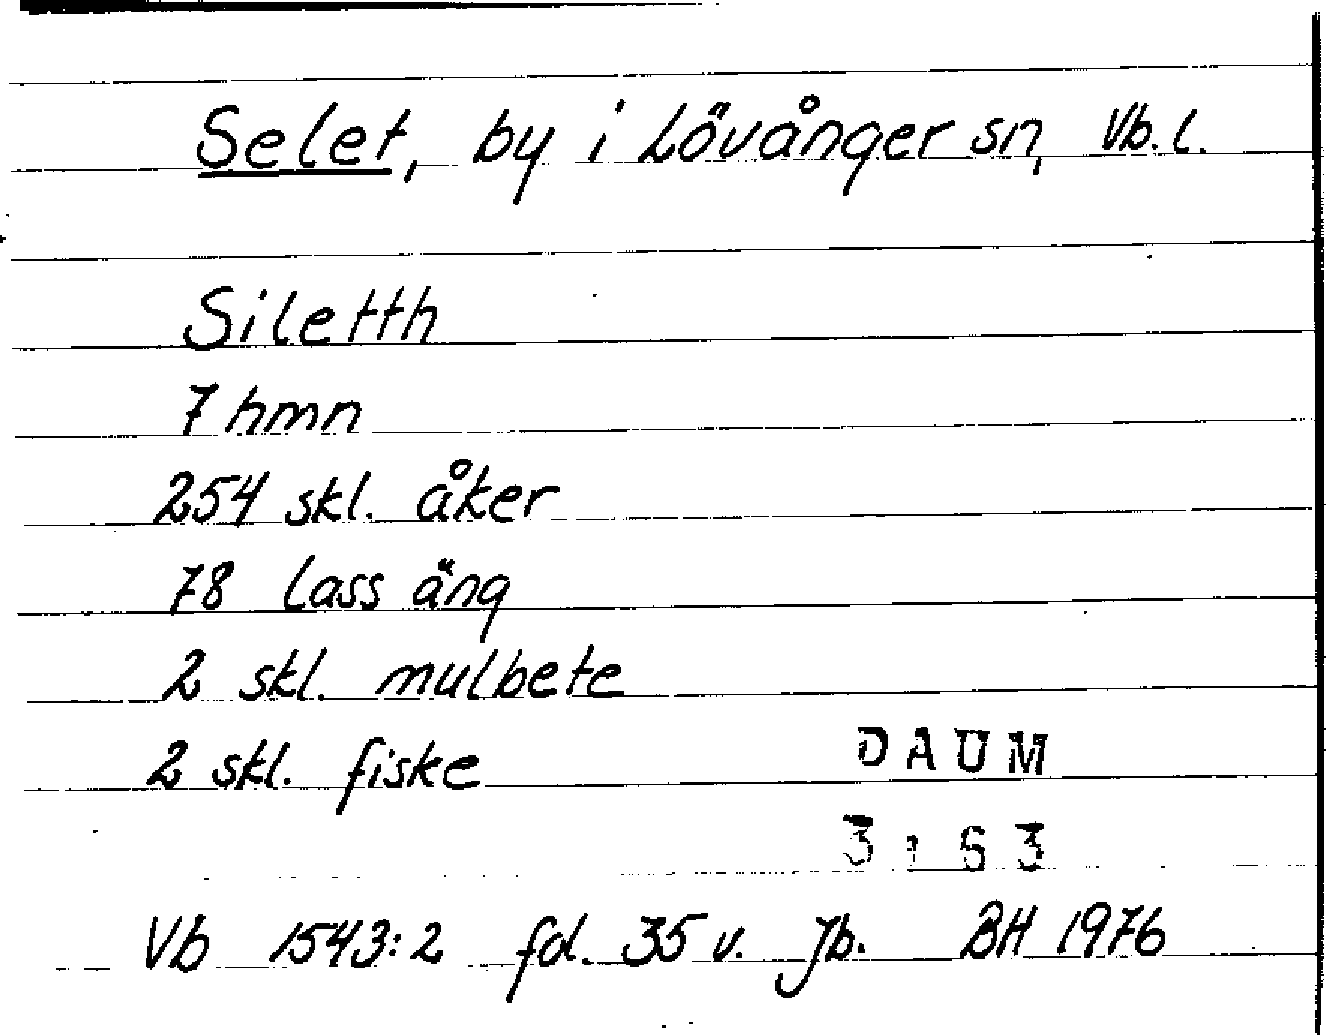 Selet, by i Lövånger sn, Vb. l.
Siletth
7 hmn
254 skl. åker
78 lass äng
2 skl. mulbete
2 skl. fiske
DAUM
3163
Vb 1543:2 fol. 35 v. Jb. BH 1976